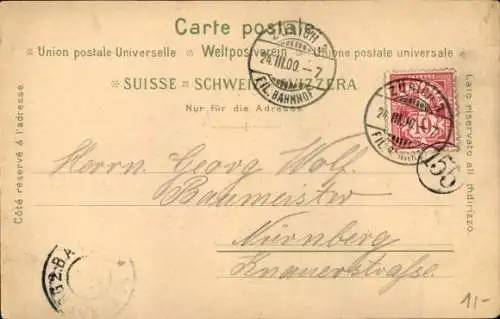 Carte postale.
Union postale Universelle Weltpostverein Unione postale universale
SUISSE SCHWEIZ SVIZZERA
Nur für die Adresse
Côté réservé à l'adresse.
Lato riservato all indirizzo.
24.III.00.-7
FIL. BAHNHOF
ZÜRICH
24.III.00
FIL.
10
156
Herrn Georg Wolf.
Baumeister
Nürnberg
Knauerstrasse.
2.B.A
1/-